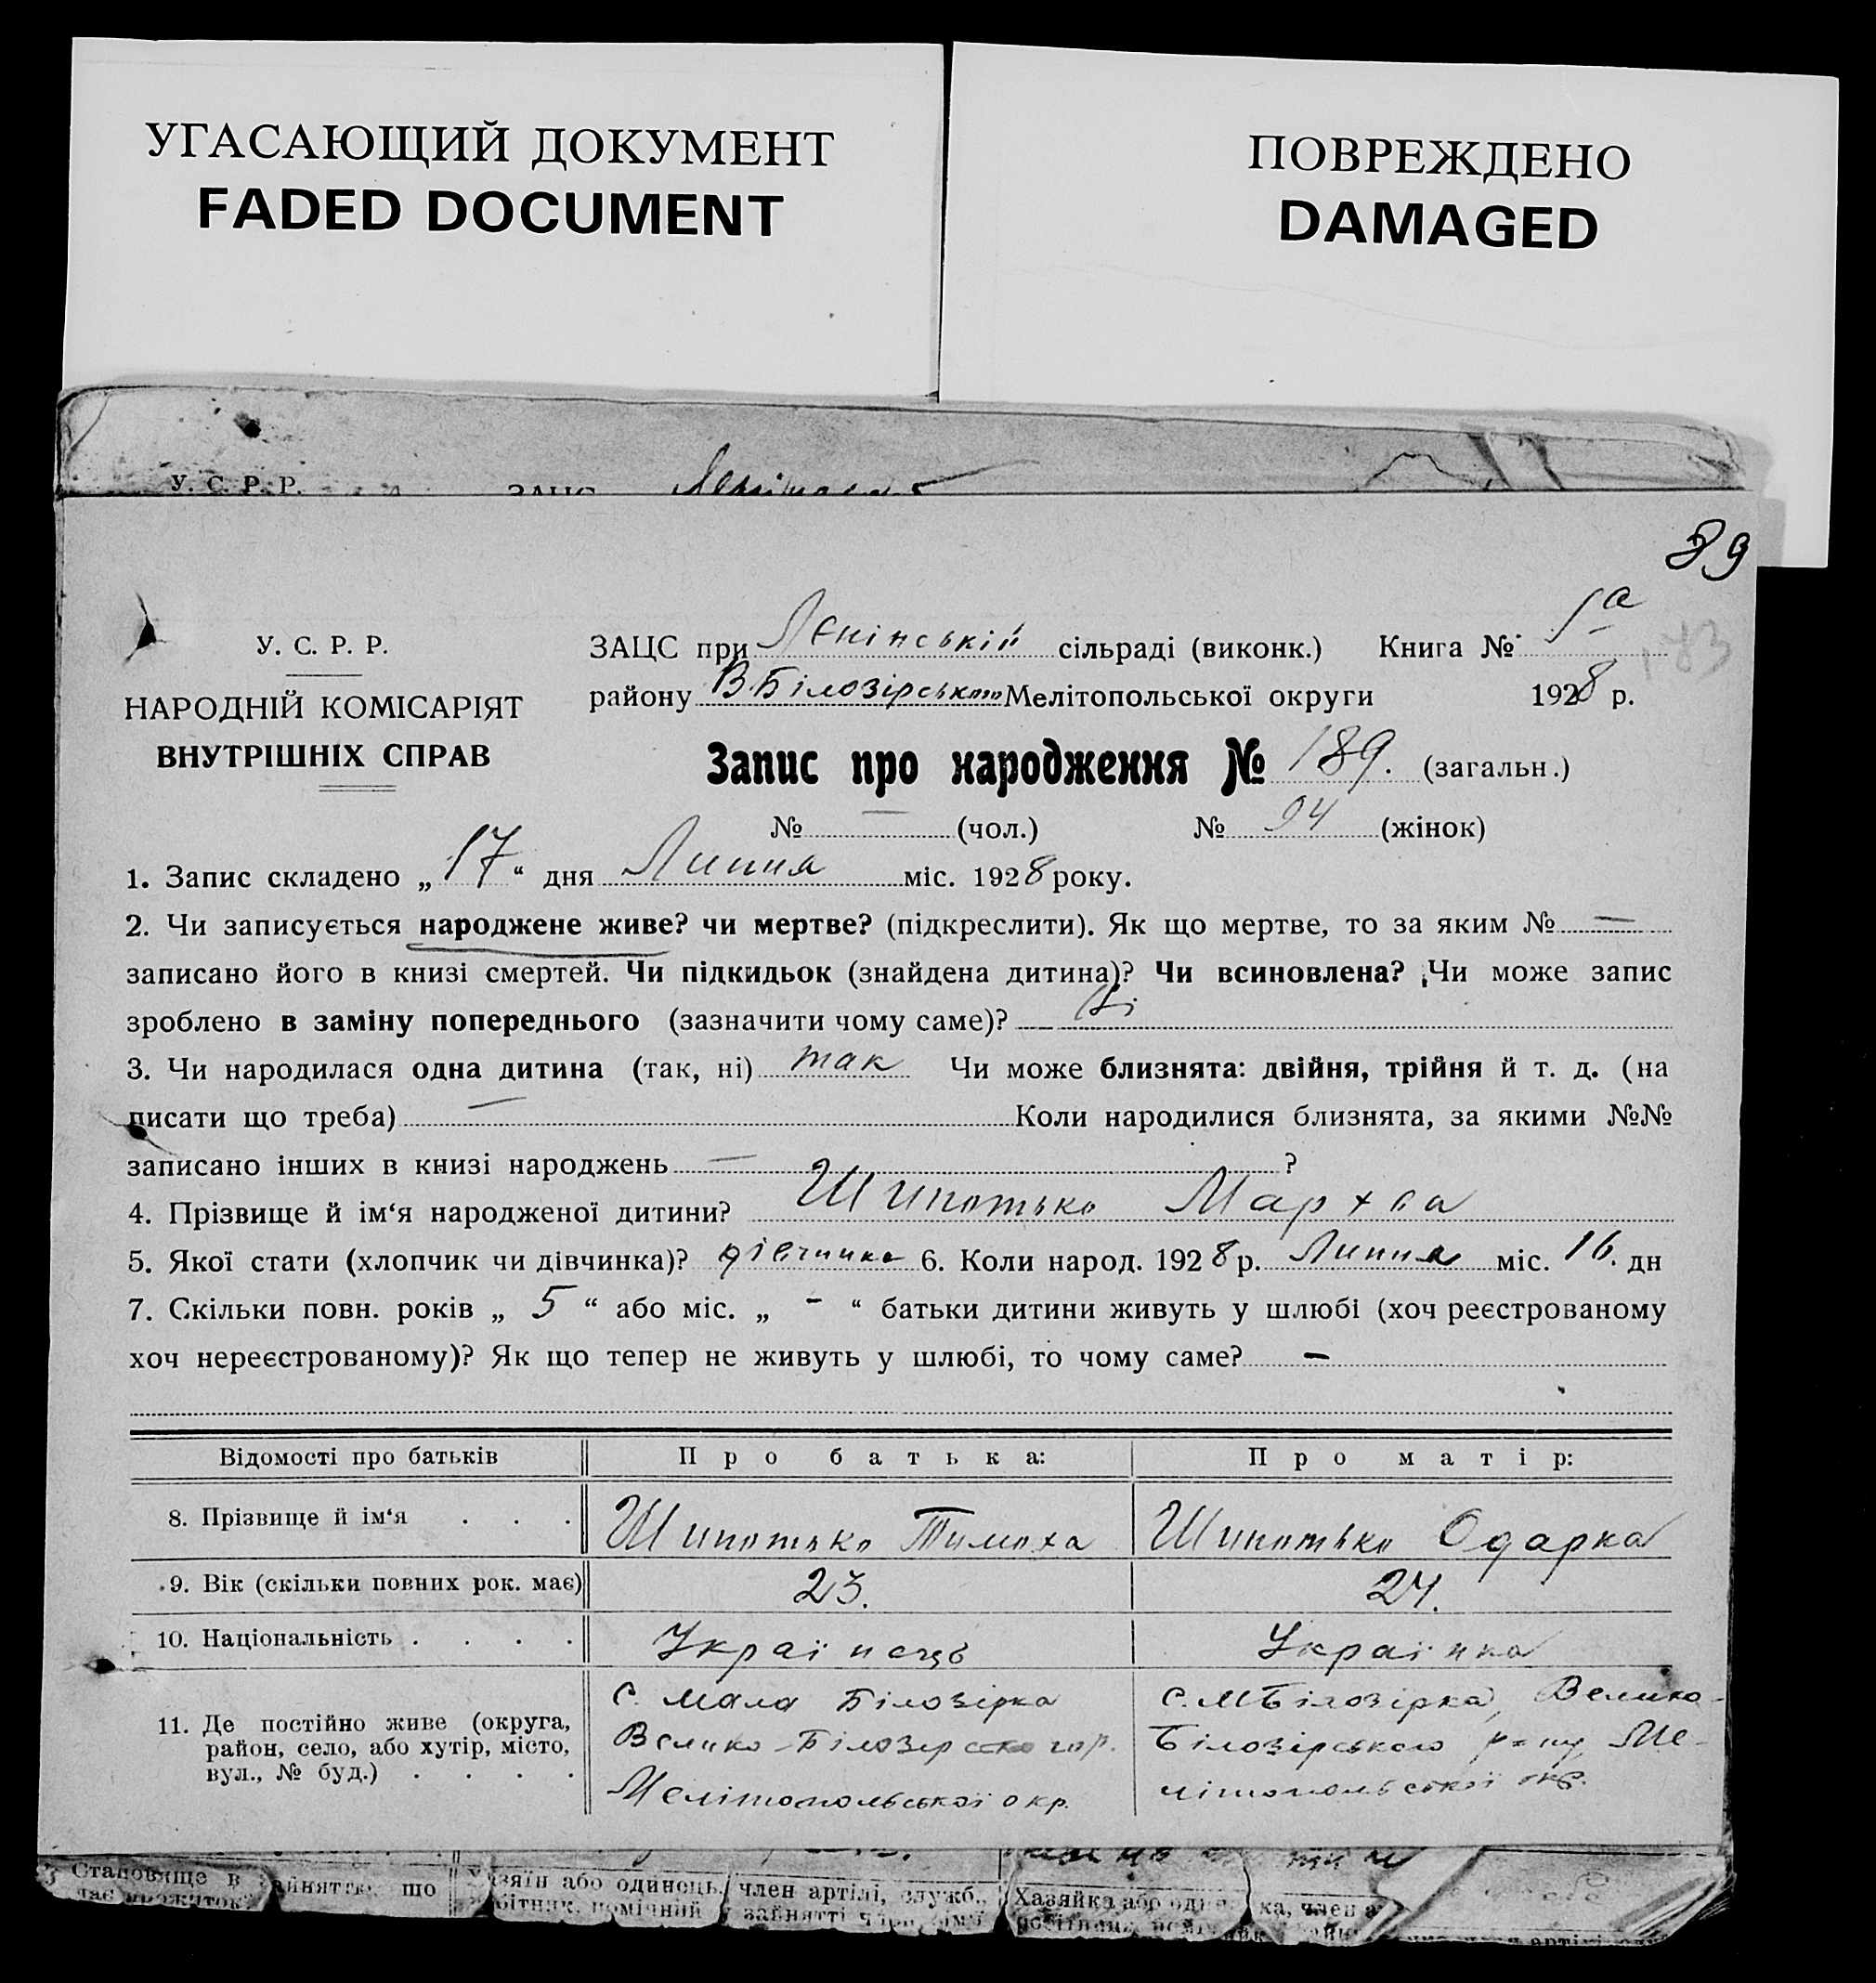 УГАСАЮЩИЙ ДОКУМЕНТ
FADED DOCUMENT
ПОВРЕЖДЕНО
DAMAGED
У. С. Р. Р. ЗАЦС
89
183
У. С. Р. Р.
НАРОДНІЙ КОМІСАРІЯТ
ВНУТРІШНІХ СПРАВ
ЗАЦС при Ленінській сільраді (виконк.) Книга № 5а
району В.Білозірського Мелітопольської округи 1928 р.
Запис про народження № 189. (загальн.)
№ — (чол.) № 94 (жінок)
1. Запис складено „17“ дня Липня міс. 1928 року.
2. Чи записується народжене живе? чи мертве? (підкреслити). Як що мертве, то за яким № —
записано його в книзі смертей. Чи підкидьок (знайдена дитина)? Чи всиновлена? Чи може запис
зроблено в заміну попереднього (зазначити чому саме)?
3. Чи народилася одна дитина (так, ні) так Чи може близнята: двійня, трійня й т. д. (на
писати що треба) — Коли народилися близнята, за якими №№
записано інших в книзі народжень — ?
4. Прізвище й ім‘я народженої дитини? Шипотько Мархва
5. Якої стати (хлопчик чи дівчинка)? дівчинка 6. Коли народ. 1928 р. Липня міс. 16. дн
7. Скільки повн. років „ 5 “ або міс. „ - “ батьки дитини живуть у шлюбі (хоч реєстрованому
хоч нереєстрованому)? Як що тепер не живуть у шлюбі, то чому саме? —
Відомості про батьків Про батька: Про матір:
8. Прізвище й ім‘я . . . Шипотько Тимоха Шипотько Одарка
9. Вік (скільки повних рок. має) 23. 24.
10. Національність . . . . Українець Українка
11. Де постійно живе (округа,
район, село, або хутір, місто,
вул., № буд.) . . . .
с. Мала Білозірка
Велико-Білозерского р.
Мелітопольської окр.
с. М Білозірка, Велико-
Білозірського р-ну Ме-
літопольської окр.
Становище в занятті, що
дає прожиток?
Хазяїн або одинець, член артілі, служб.,
робітник, помічний у занятті член сім'ї
Хазяйка або